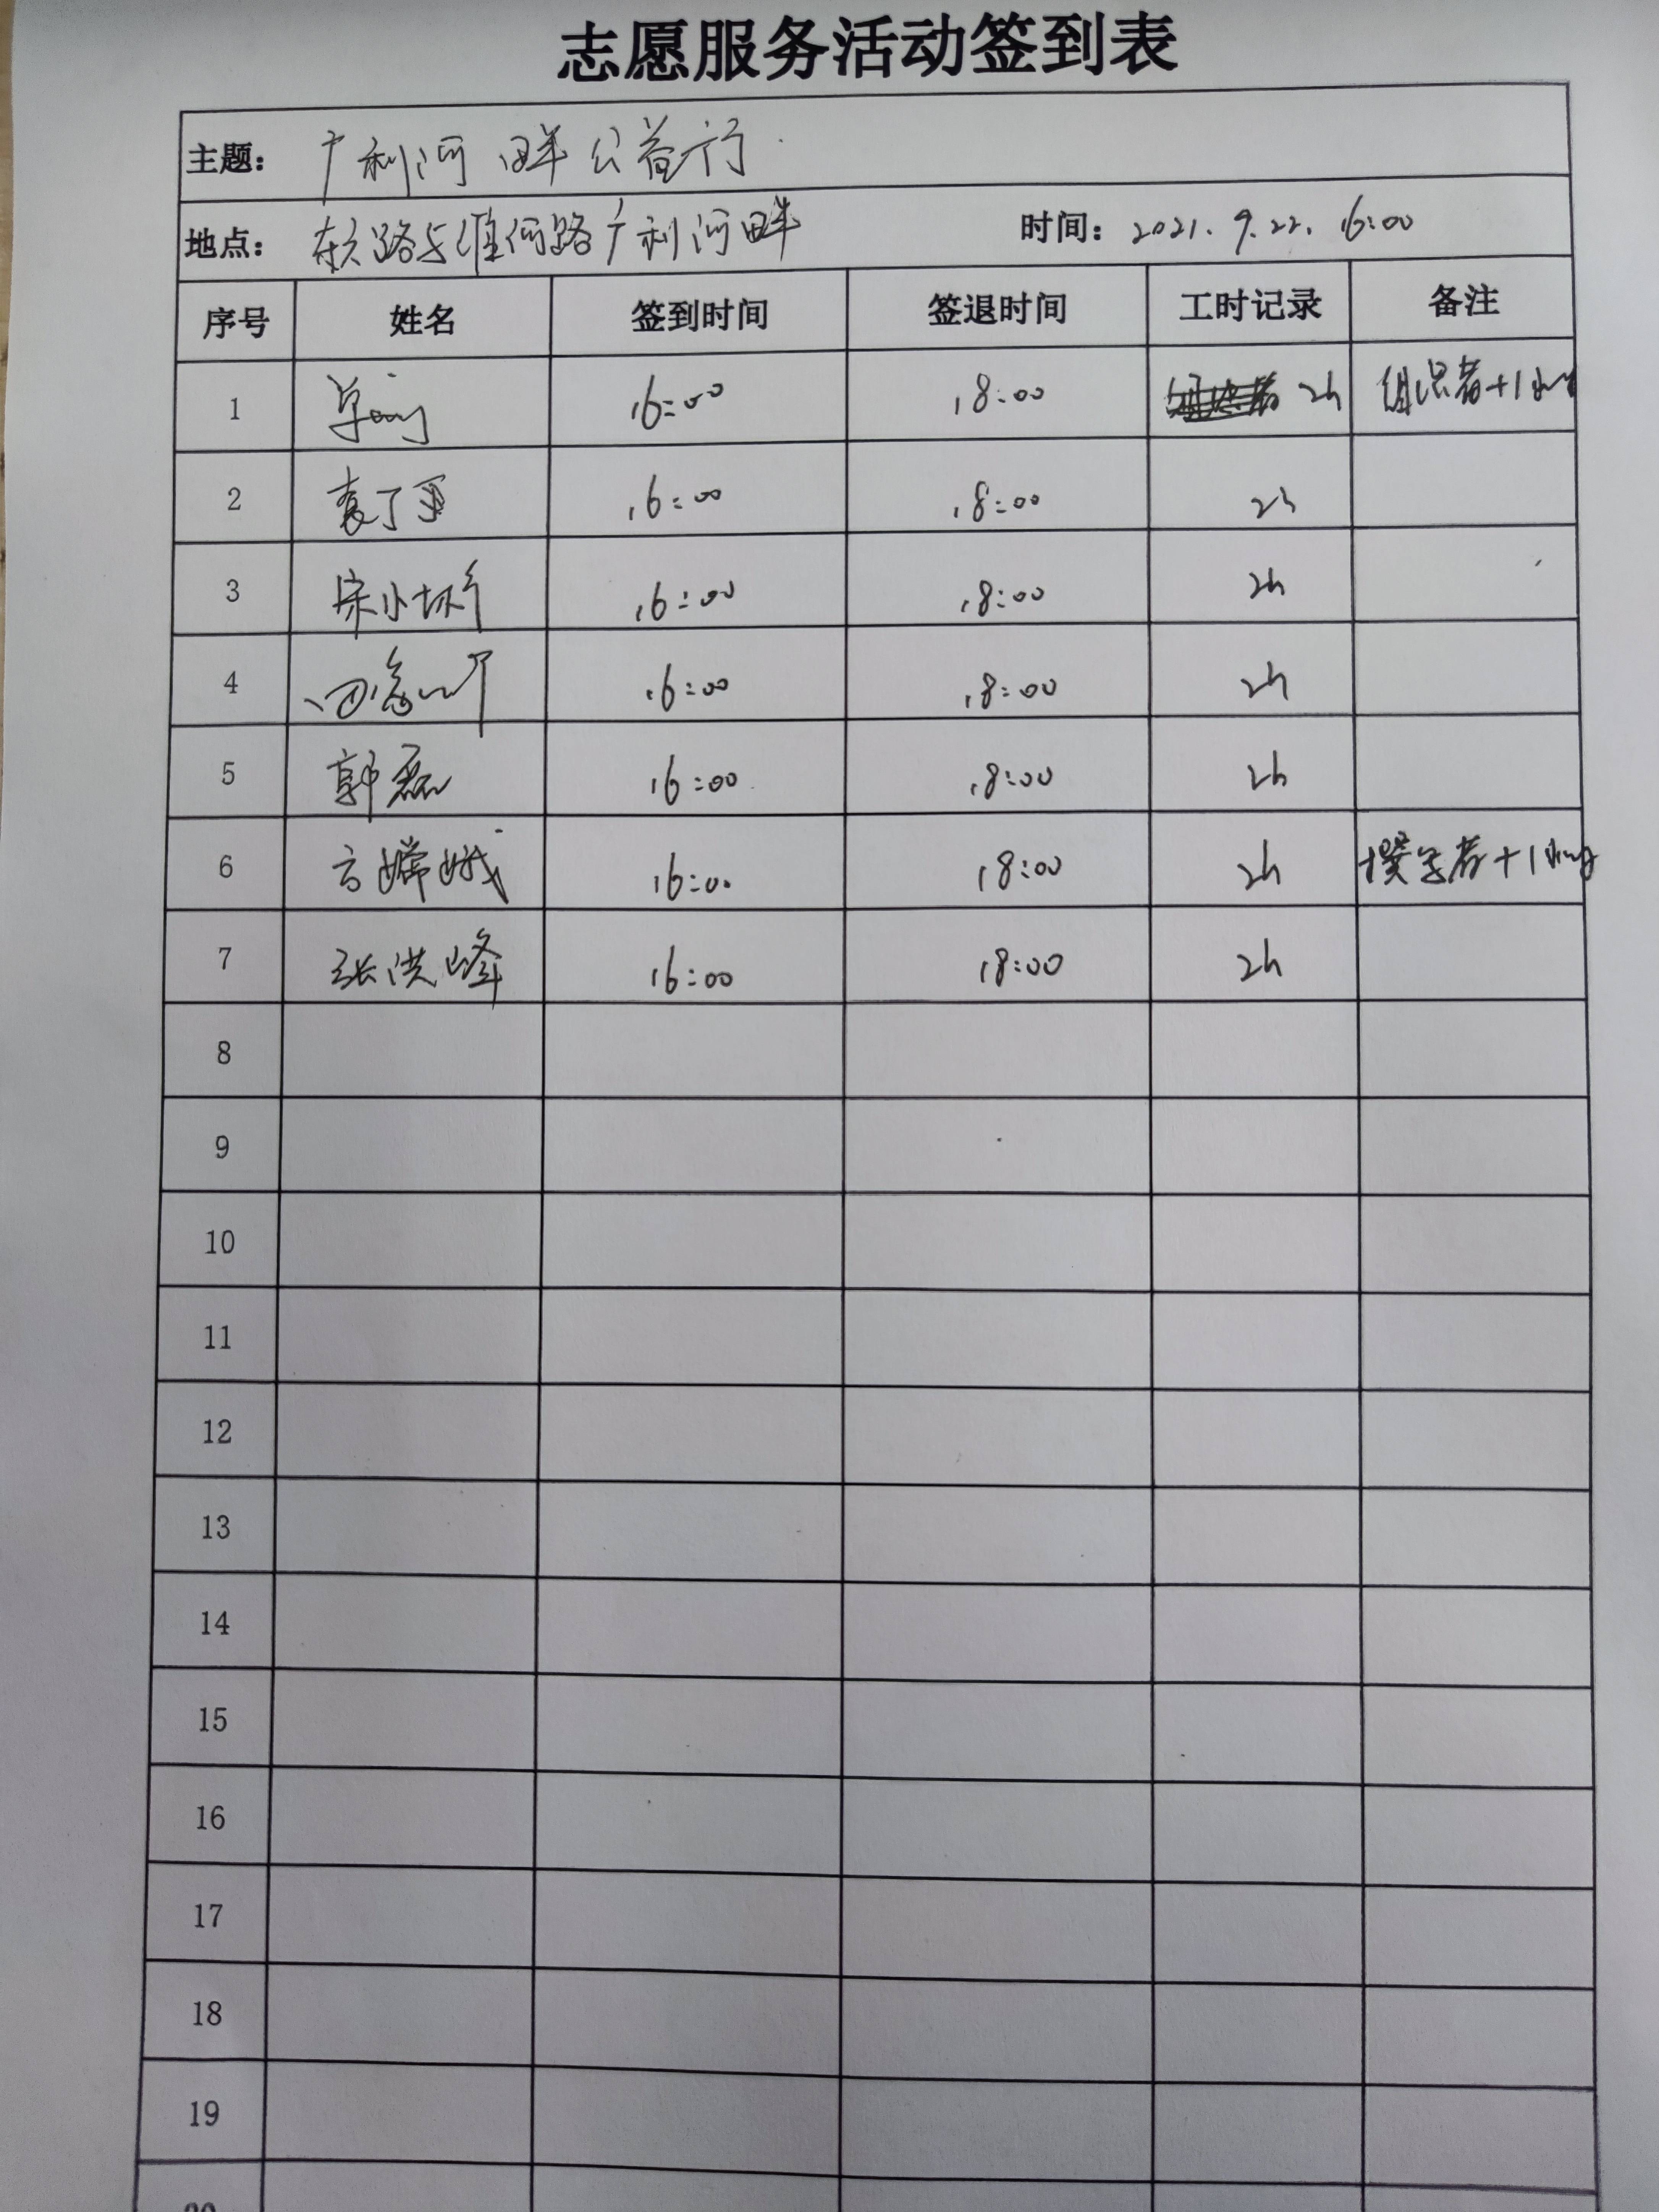 志愿服务活动签到表
主题： 广利河畔公益行
地点： 路与淮河路广利河畔 时间：2021.9.22. 16:00
序号 姓名 签到时间 签退时间 工时记录 备注
1 16:00 18:00 2h 组织者+1小时
2 袁丁 16:00 18:00 2h
3 宋小 16:00 18:00 2h
4 16:00 18:00 2h
5 郭磊 16:00 18:00 2h
6 嫦娥 16:00 18:00 2h 撰写者+1小时
7 张洪峰 16:00 18:00 2h
8
9
10
11
12
13
14
15
16
17
18
19
20